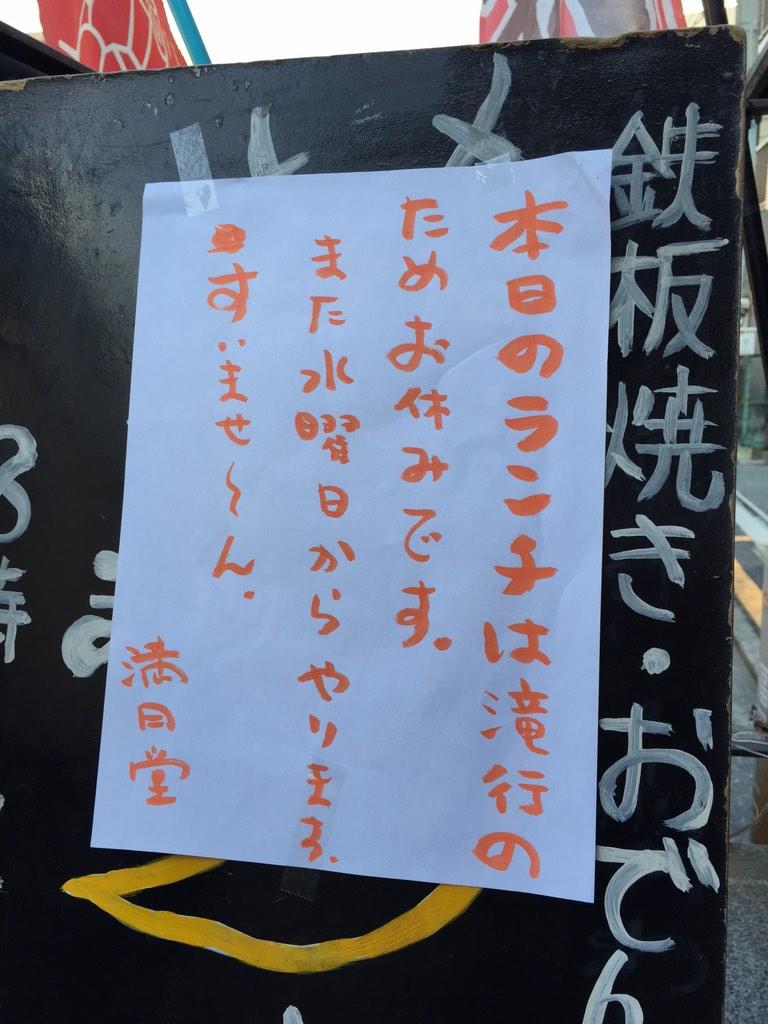 鉄板焼き・おでん
本日のランチは滝行の
ためお休みです。
また水曜日からやります。
すいませ〜ん.
満月堂
時